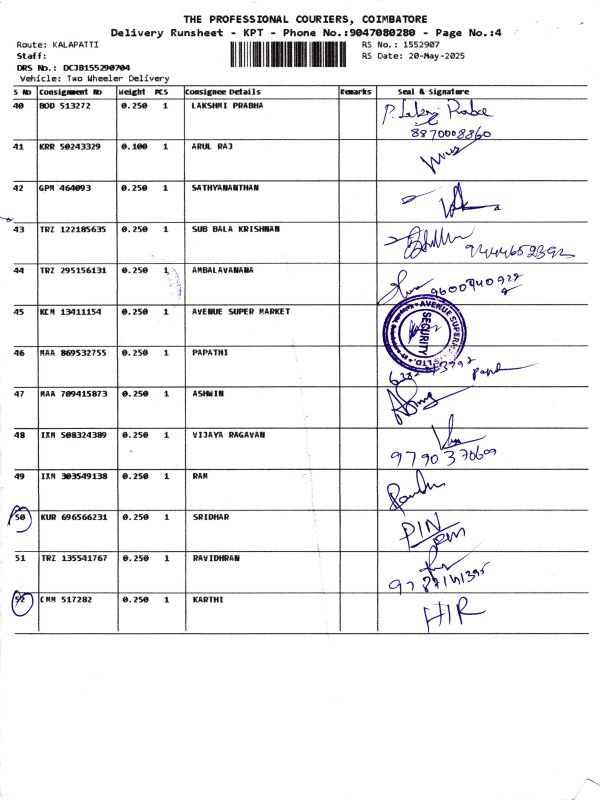 THE PROFESSIONAL COURIERS, COIMBATORE
Delivery Runsheet - KPT - Phone No.:9047080280 - Page No.:4
Route: KALAPATTI RS No.: 1552907
Staff: RS Date: 20-May-2025
DRS No.: DCJB155290704
Vehicle: Two Wheeler Delivery
S NO Consignment NO Weight PCS Consignee Details Remarks Seal & Signature
40 BOD 513272 0.250 1 LAKSHMI PRABHA
8870008860
41 KRR 50243329 0.100 1 ARUL RAJ
42 GPM 464093 0.250 1 SATHYANANTHAN
43 TRZ 122185635 0.250 1 SUB BALA KRISHNAN
9244652392
44 TRZ 295156131 0.250 1 AMBALAVANANA
9600940928
45 KCM 13411154 0.250 1 AVENUE SUPER MARKET
AVENUE SUPERM
SECURITY
46 MAA 869532755 0.250 1 PAPATHI
47 MAA 709415873 0.250 1 ASHWIN
48 IXM 508324389 0.250 1 VIJAYA RAGAVAN
9790370609
49 IXM 303549138 0.250 1 RAM
50 KUR 696566231 0.250 1 SRIDHAR
PIN
51 TRZ 135541767 0.250 1 RAVIDHRAN
52 CMM 517282 0.250 1 KARTHI
HIR